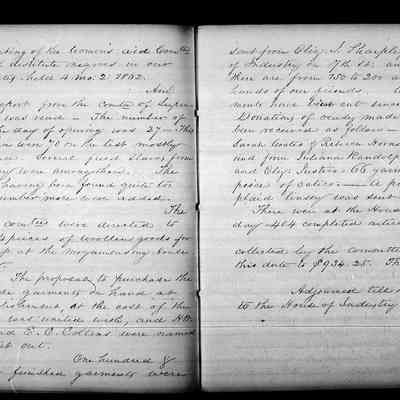 eting of the Women's Aid Comtee
d destitute negroes in our
city, held 4 mo. 2. 1862.
An
eport from the comtee of Superin
was read - The number of
the day of opening was 27 - This
70 on the last mostly
Several freed slaves from
were amongst them. The
having been found quite too
number more were added.
The
comtee were directed to
prices of woollens goods for
up at the Moyamensing house
The proposal to purchase the
garments on hand at
at the cost of the
was united with, and
and E. C. Collins were named
it out.
One hundred &
finished garments were
sent from Eliz. S.
of Industry on 7th St. an
there are from 150 to 200 a
hands of our friends.
ments have been cut since
Donations of ready made
been received as follows -
Sarah Coates & Rebecca
and from Juliana Randolph
and Eliz. Justice. 66 yar
piece of calico. - A p
plaid linsey was sent
There were at the House
day 464 completed articl
collected by the committee
this date to $934.25. Th
Adjourned till
to the House of Industry